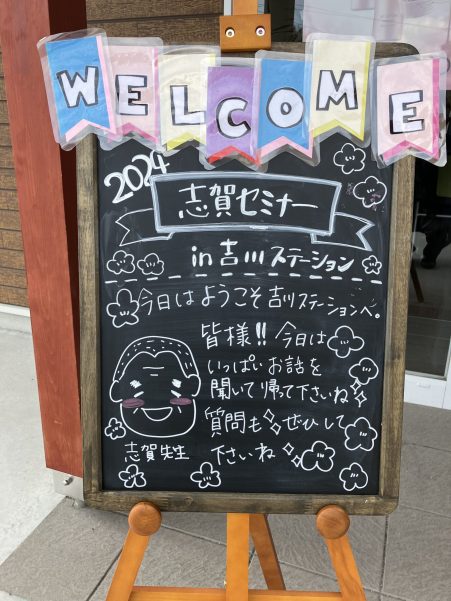 WELCOME
2024
志賀セミナー
in 吉川ステーション
今日はようこそ吉川ステーションへ。
皆様!! 今日は
いっぱいお話を
聞いて帰って下さいね
質問もぜひして
下さいね
志賀先生